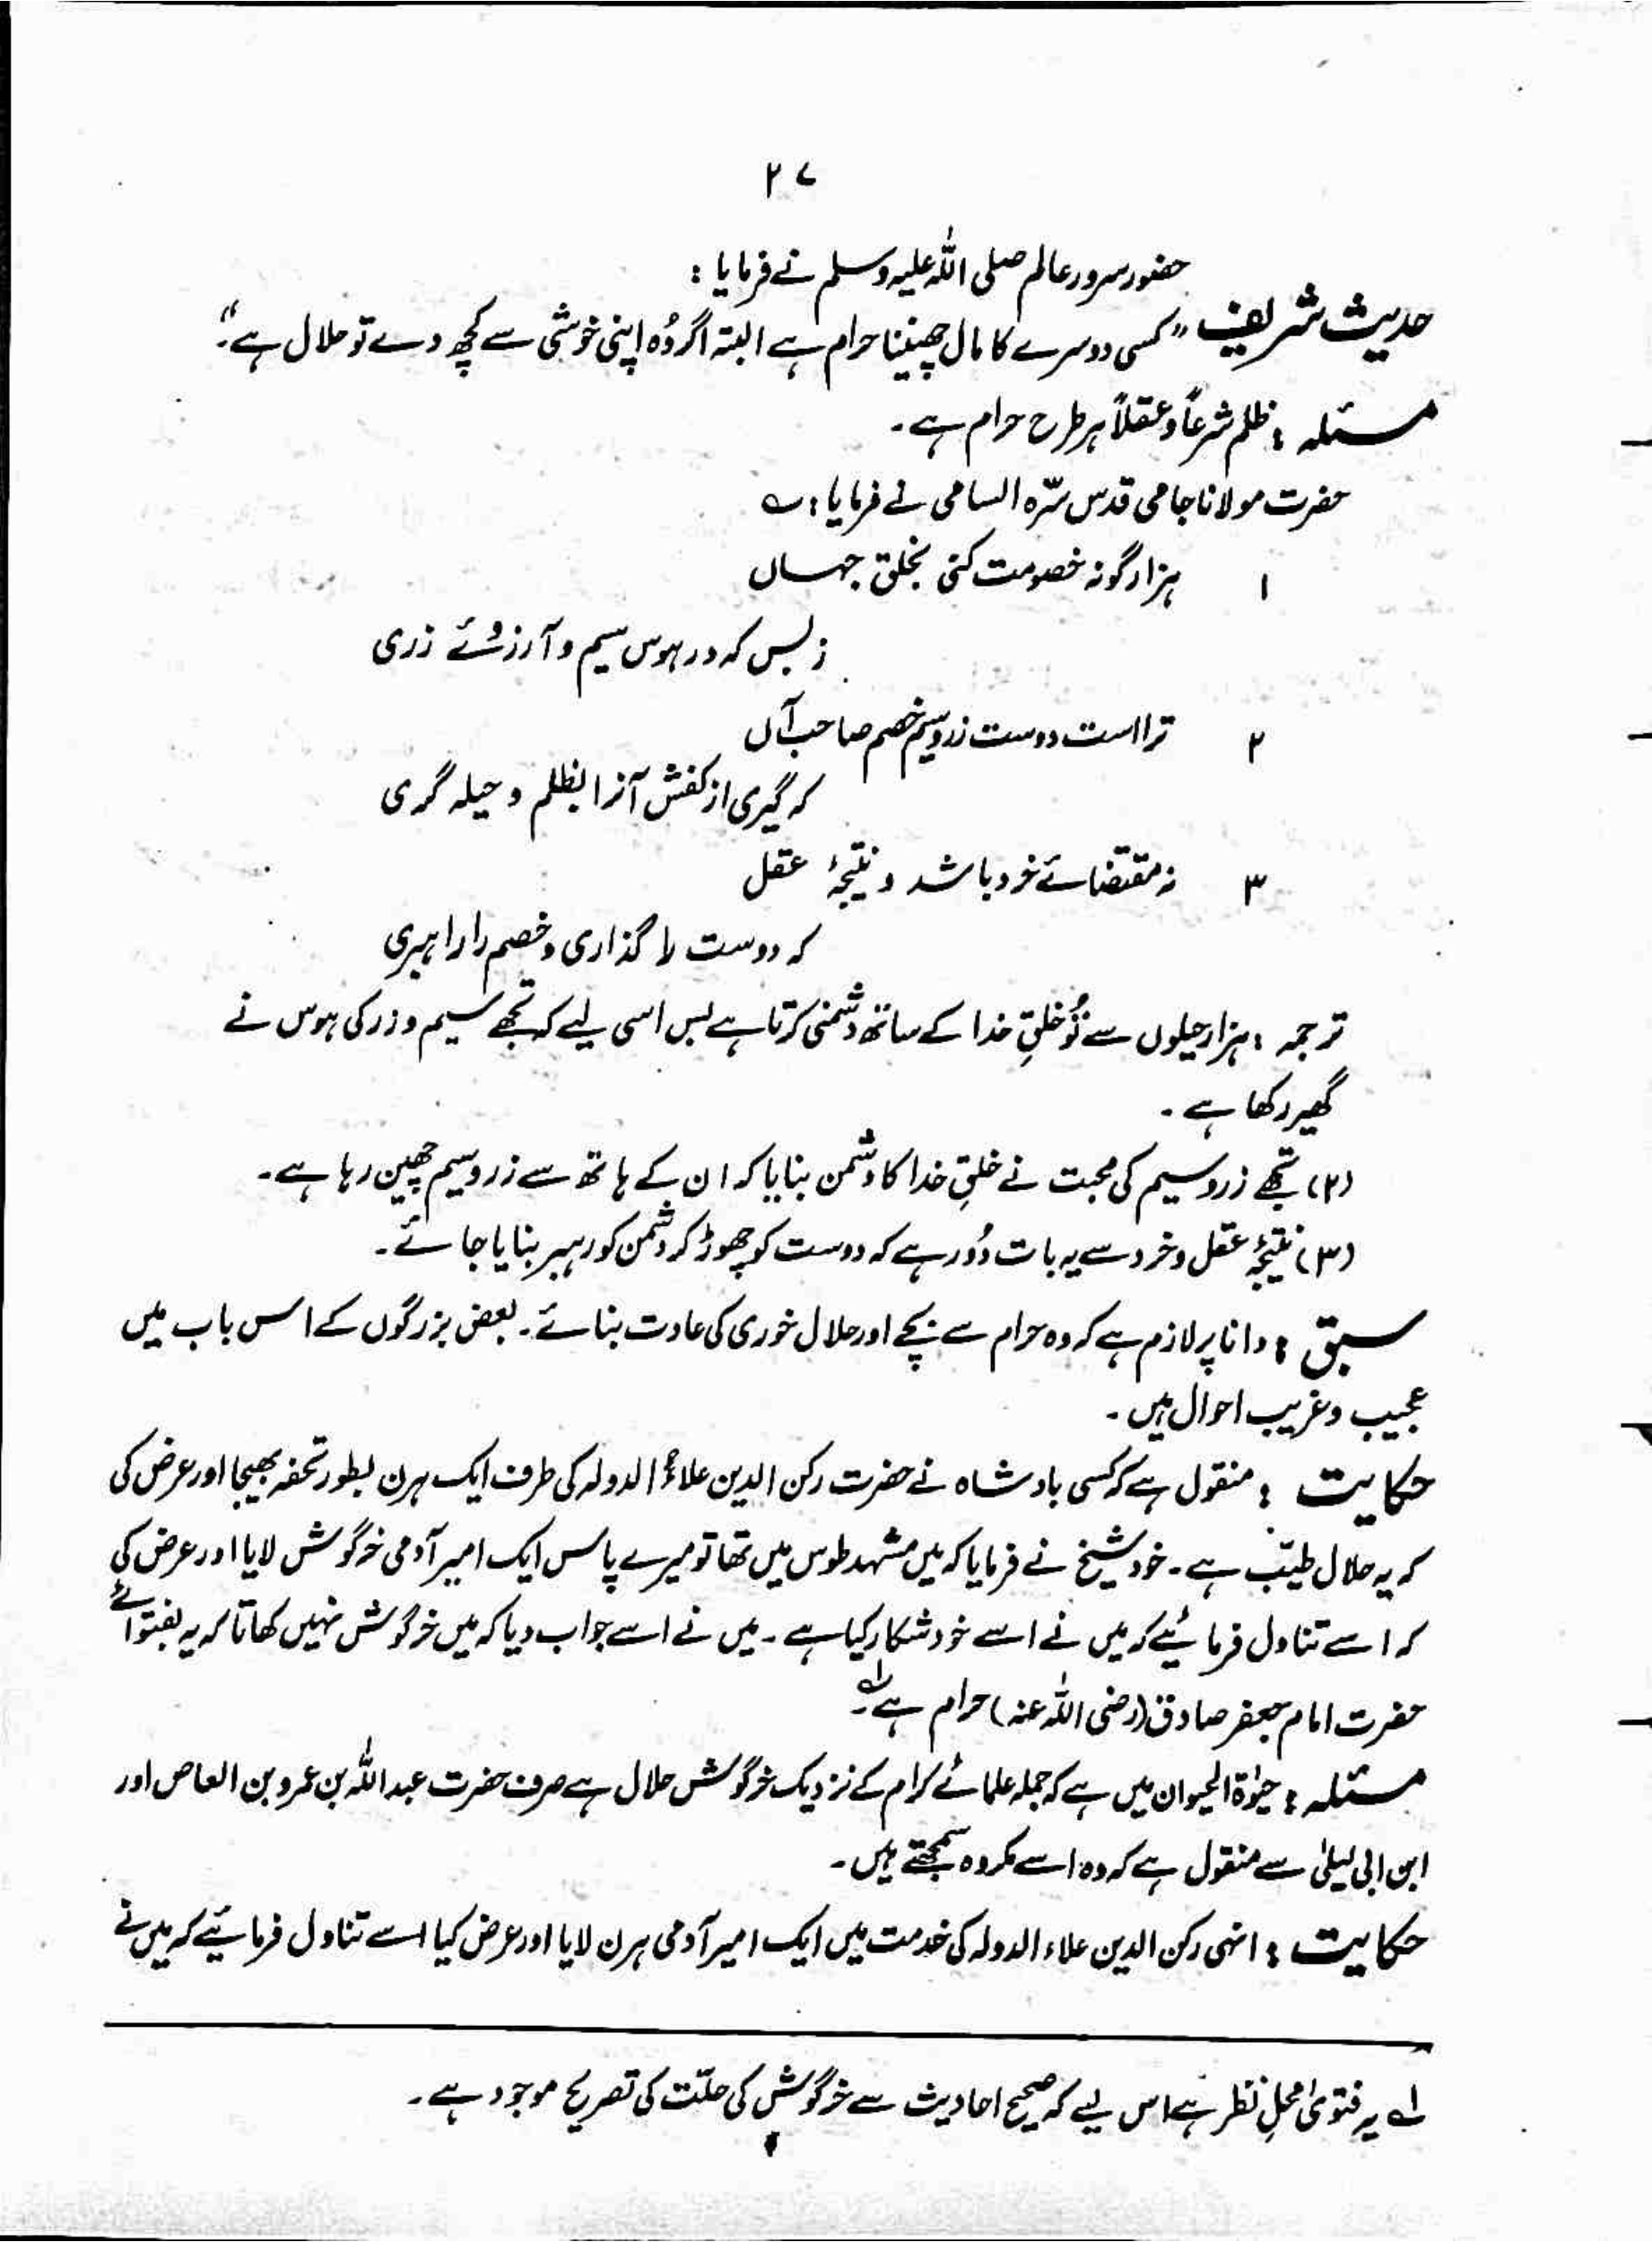 ۲۷
حضور سرور عالم صلی اللہ علیہ وسلم نے فرمایا :
حدیث شریف "کسی دوسرے کا مال چھیننا حرام ہے البتہ اگر وُہ اپنی خوشی سے کچھ دے تو حلال ہے"۔
مسئلہ : ظلم شرعاً و عقلاً ہر طرح حرام ہے۔
حضرت مولانا جامی قدس سّرہ السامی نے فرمایا : ؎
۱ ہزار گونہ خصومت کنی بخلق جہاں
زبس کہ در ہوس سیم و آرزوئے زری
۲ ترا است دوست زر و سیم خصم صاحب آں
کہ گیری از کفش آنرا بظلم و حیلہ گری
۳ نہ مقتضائے خرد باشد و نتیجۂ عقل
کہ دوست را گذاری و خصم را را ہبری
ترجمہ : ہزار حیلوں سے تُو خلقِ خدا کے ساتھ دشمنی کرتا ہے بس اسی لیے کہ تجھے سیم و زر کی ہوس نے
گھیر رکھا ہے۔
(۲) تجھے زر و سیم کی محبت نے خلقِ خدا کا دشمن بنایا کہ ان کے ہاتھ سے زر و سیم چھین رہا ہے۔
(۳) نتیجۂ عقل و خرد سے یہ بات دُور ہے کہ دوست کو چھوڑ کر دشمن کو رہبر بنایا جائے۔
سبق : دانا پر لازم ہے کہ وہ حرام سے بچے اور حلال خوری کی عادت بنائے۔ بعض بزرگوں کے اس باب میں
عجیب و غریب احوال ہیں۔
حکایت : منقول ہے کہ کسی بادشاہ نے حضرت رکن الدین علاؤ الدولہ کی طرف ایک ہرن بطور تحفہ بھیجا اور عرض کی
کہ یہ حلال طیّب ہے۔ خود شیخ نے فرمایا کہ میں مشہد طوس میں تھا تو میرے پاس ایک امیر آدمی خرگوش لایا اور عرض کی
کہ اسے تناول فرمائیے کہ میں نے اسے خود شکار کیا ہے۔ میں نے اسے جواب دیا کہ میں خرگوش نہیں کھاتا کہ یہ بفتوائے
حضرت امام جعفر صادق (رضی اللہ عنہ) حرام ہے۔ لہ
مسئلہ : حیٰوۃ الحیوان میں ہے کہ جملہ علمائے کرام کے نزدیک خرگوش حلال ہے صرف حضرت عبد اللہ بن عمرو بن العاص اور
ابن ابی لیلیٰ سے منقول ہے کہ وہ اسے مکروہ سمجھتے ہیں۔
حکایت : انہی رکن الدین علاء الدولہ کی خدمت میں ایک امیر آدمی ہرن لایا اور عرض کیا اسے تناول فرمائیے کہ میں نے
لہ یہ فتویٰ محلِ نظر ہے اس لیے کہ صحیح احادیث سے خرگوش کی حلّت کی تصریح موجود ہے۔